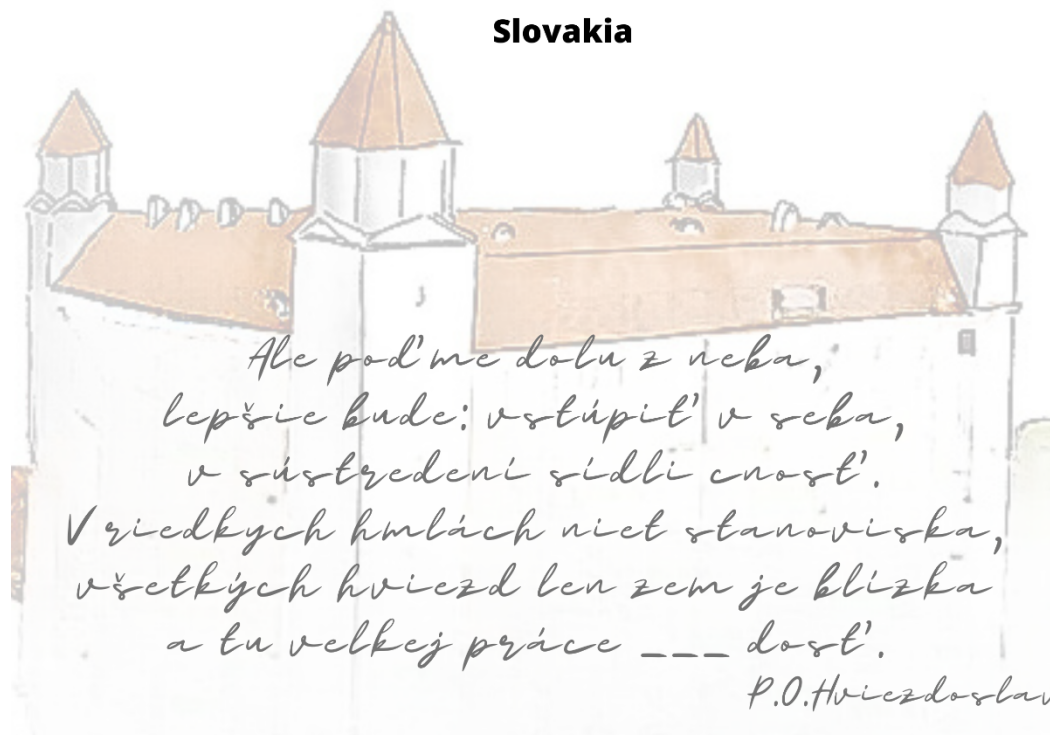 Slovakia
Ale poďme dolu z neba,
lepšie bude: vstúpiť v seba,
v sústredení sídli cnosť.
V riedkych hmlách niet stanoviska,
všetkých hviezd len zem je blízka
a tu velkej práce ___ dosť.
P.O.Hviezdoslav